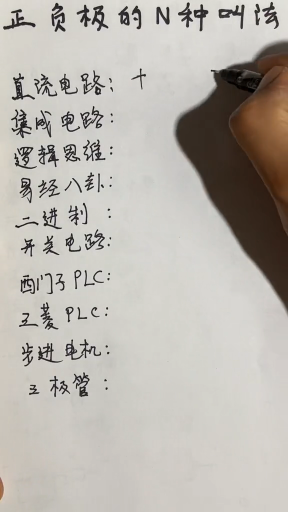 正负极的N种叫法
直流电路: +
集成电路:
逻辑思维:
易经八卦:
二进制:
开关电路:
西门子PLC:
三菱PLC:
步进电机:
三极管: